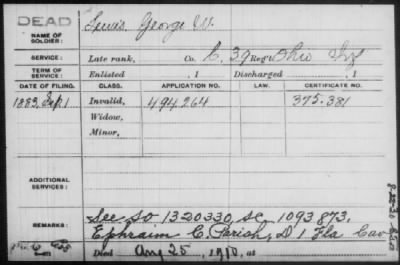 DEAD
NAME OF SOLDIER: Lewis, George W.
SERVICE: Late rank, Co. C, 39 Reg't Ohio Inf
TERM OF SERVICE: Enlisted , 1 Discharged , 1
DATE OF FILING. CLASS. APPLICATION NO. LAW. CERTIFICATE NO.
1883, Sep. 1 Invalid, 494264 375.381
Widow,
Minor,
ADDITIONAL SERVICES:
REMARKS: See So 1320330, SC, 1093873,
Ephraim C. Parish, D 1 Fla Cav
Died Aug 25, 1910, at